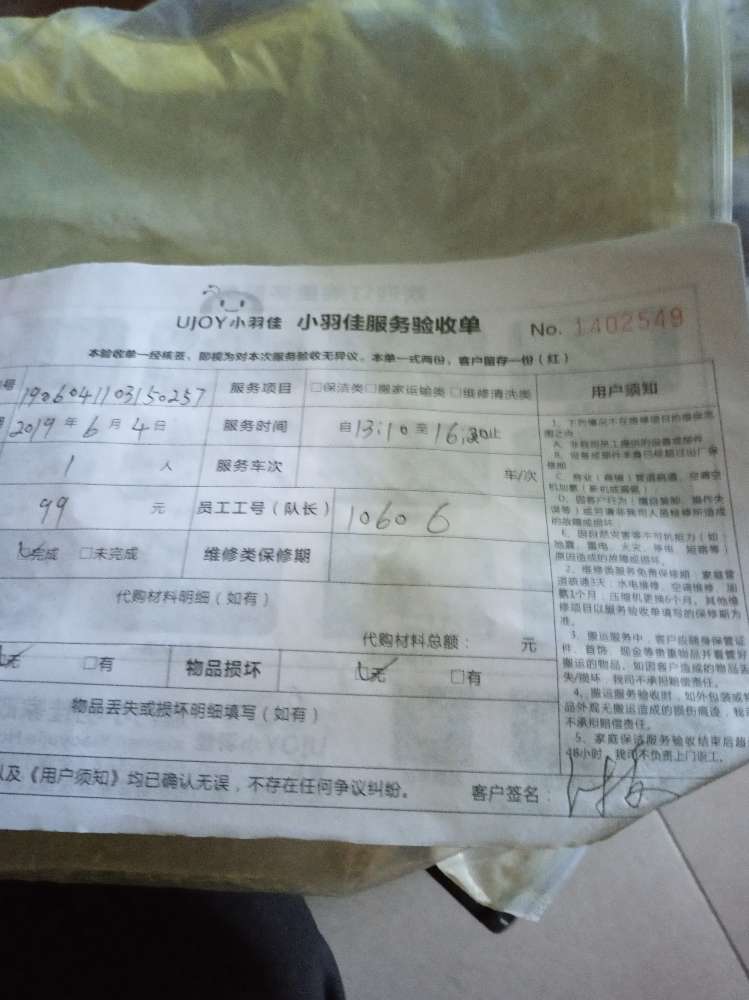 UJOY小羽佳 小羽佳服务验收单 No. 1402549
本验收单一经核签，即视为对本次服务验收无异议。本单一式两份，客户留存一份（红）
号 1906041103150257 服务项目 □保洁类□搬家运输类□维修清洗类 用户须知
2019年6月4日 服务时间 自13:10至16:30止
1 人 服务车次 车/次
99 元 员工工号（队长） 10606
完成 □未完成 维修类保修期
代购材料明细（如有）
代购材料总额： 元
无 □有 物品损坏 无 □有
物品丢失或损坏明细填写（如有）
以及《用户须知》均已确认无误，不存在任何争议纠纷。 客户签名：
1、下列情况不在维修项目的维保范
围之内
A、非我司员工提供的设备或部件
B、设备或部件本身已经超过出厂保
修期
C、商业（商铺）管道疏通、空调空
机加氟（新机或漏氟）
D、因客户行为（擅自装卸、操作失
误等）或另请非我司人员检修所造成
的故障或损坏
E、因自然灾害等不可抗能力（如：
地震、雷电、火灾、停电、短路等）
原因造成的故障或损坏。
2、维修类服务免费保修期：家庭管
道疏通3天；水电维修、空调维修、加
氟1个月；压缩机更换6个月。其他维
修项目以服务验收单填写的保修期为
准。
3、搬运服务中，客户应随身保管证
件、首饰、现金等贵重物品并看管好
搬运的物品，如因客户造成的物品丢
失/损坏，我司不承担赔偿责任。
4、搬运服务验收时，如外包装或物
品外观无搬运造成的损伤痕迹，我司
不承担赔偿责任。
5、家庭保洁服务验收结束后超
48小时，我司不负责上门返工。